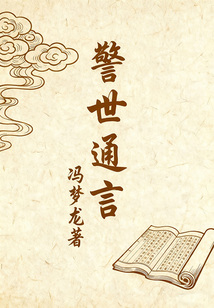 警世通言
冯梦龙著